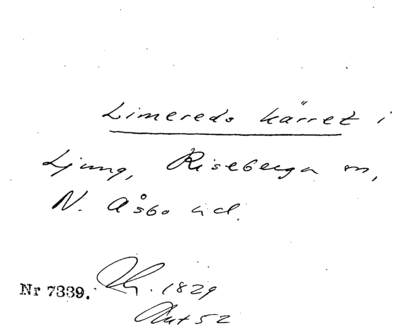 Limereds kärret i
Ljung, Riseberga sn,
N. Åsbo hd.
Nr 7339. 1829
Akt 52